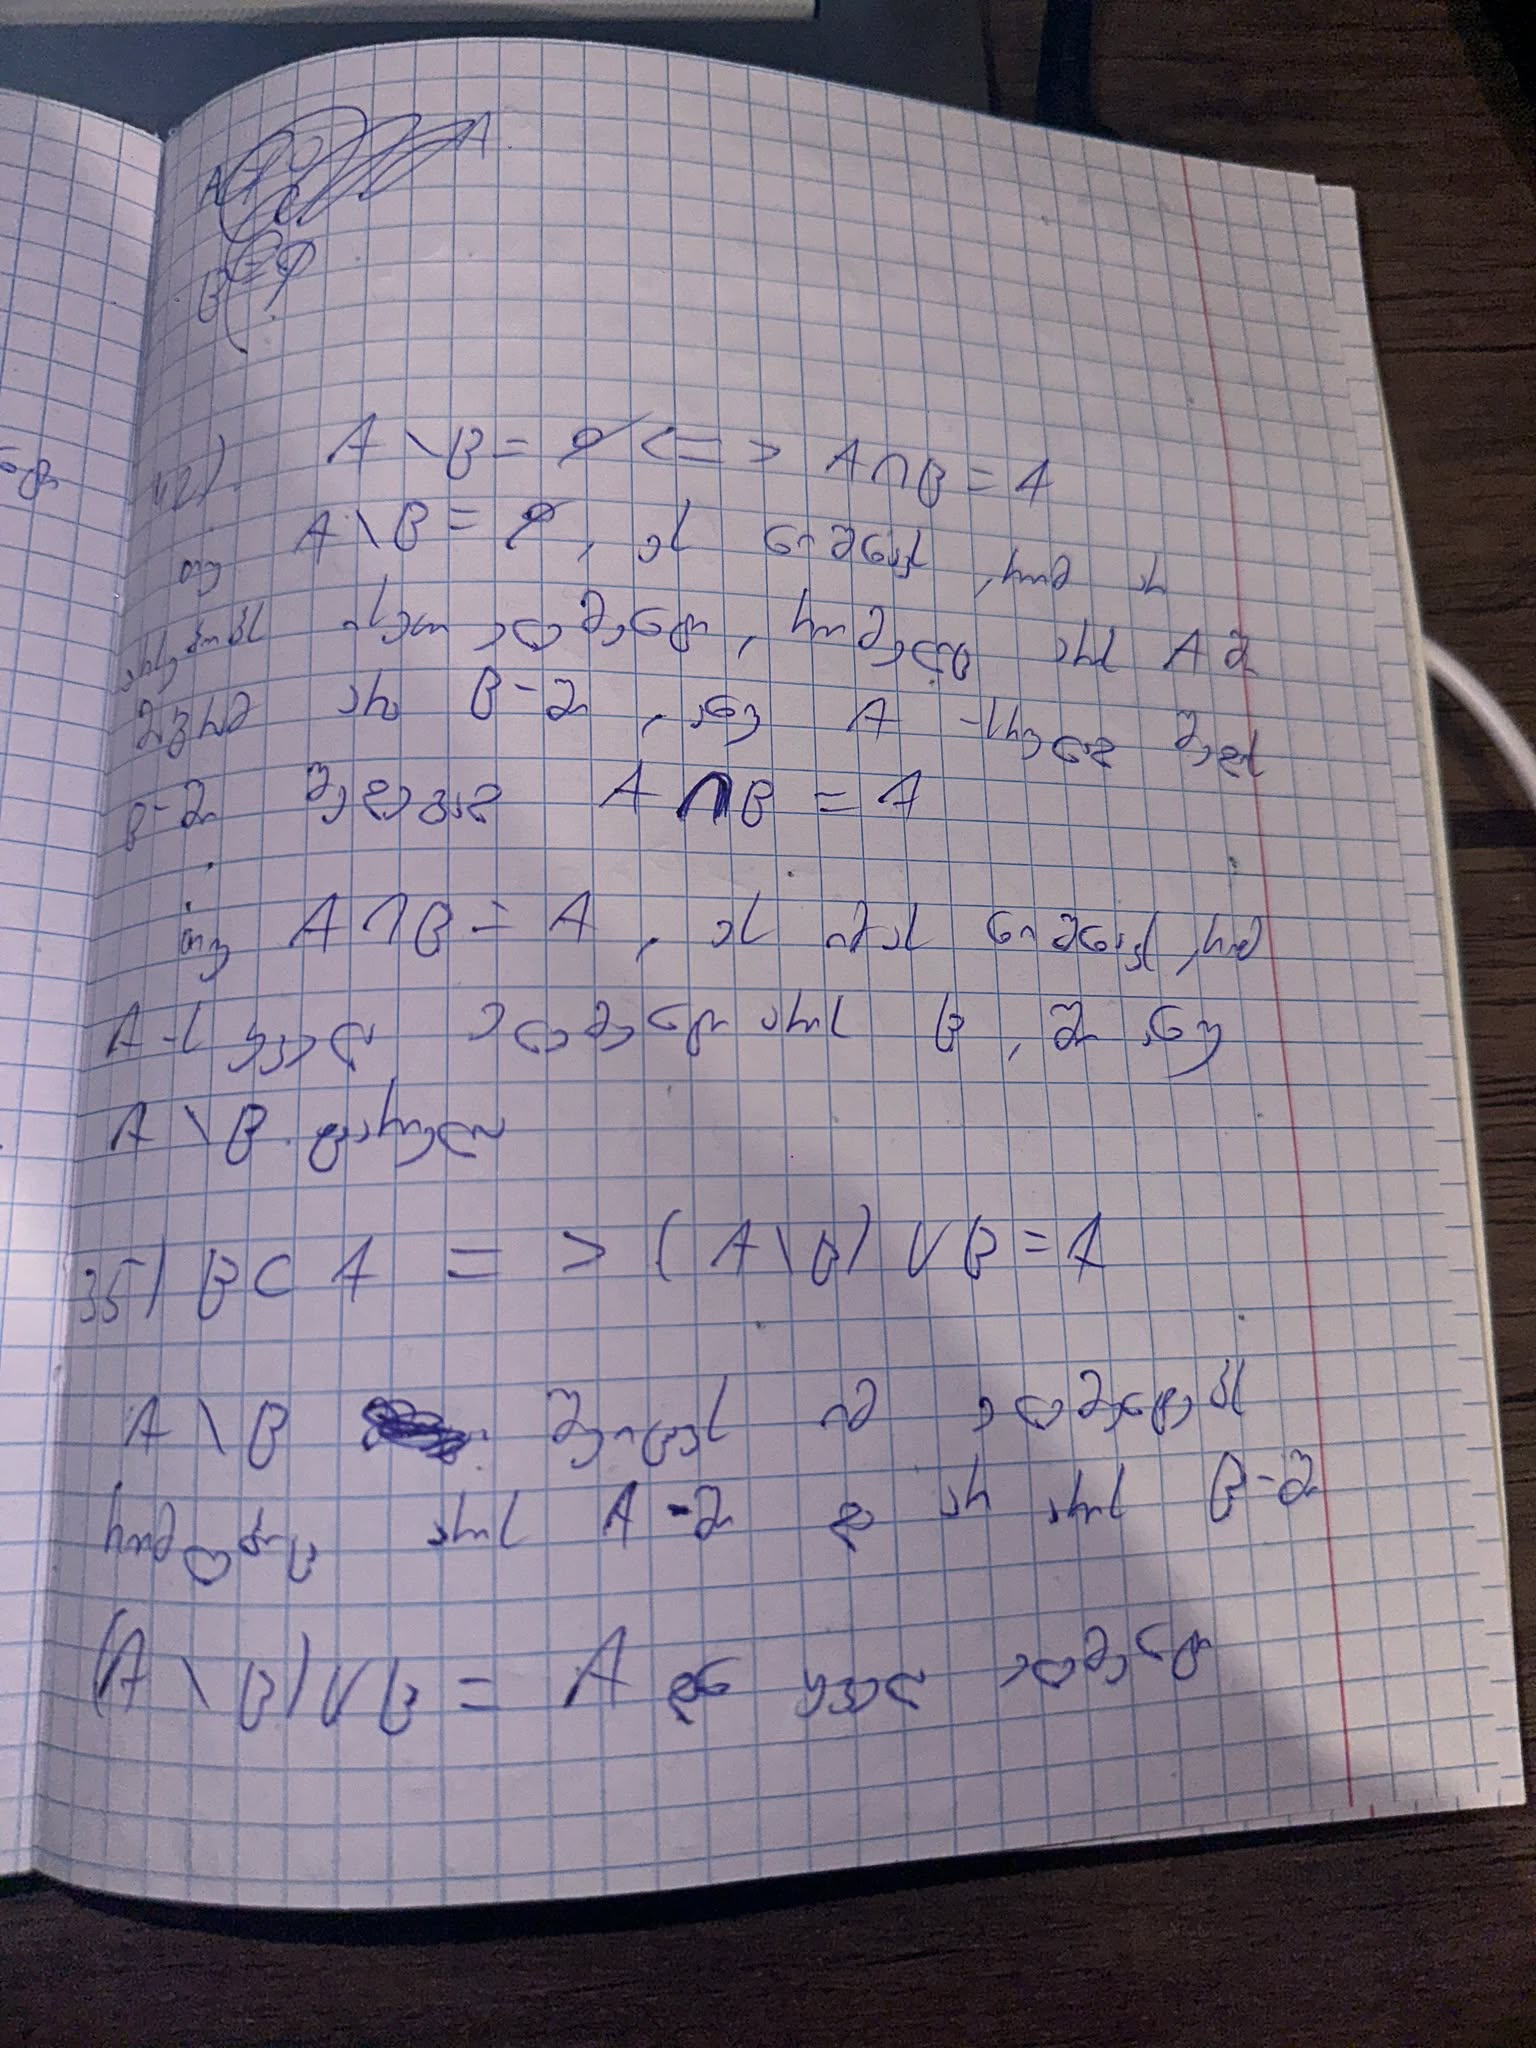 42). A \ B = ∅ <=> A ∩ B = A
თუ A \ B = ∅, ეს ნიშნავს, რომ არ
არსებობს ისეთი ელემენტი, რომელიც არის A ში
მაგრამ არა B-ში, ანუ A -ს ყველა
B-ში შედის A ∩ B = A
თუ A ∩ B = A, ეს იმას ნიშნავს, რომ
A-ს ყველა ელემენტი არის B, ში, ანუ
A \ B. ცარიელია
35) B ⊂ A => (A \ B) ∪ B = A
A \ B შეიცავს იმ ელემენტებს
რომლებიც არის A-ში და არ არის B-ში
(A \ B) ∪ B = A ყველა ელემენტი